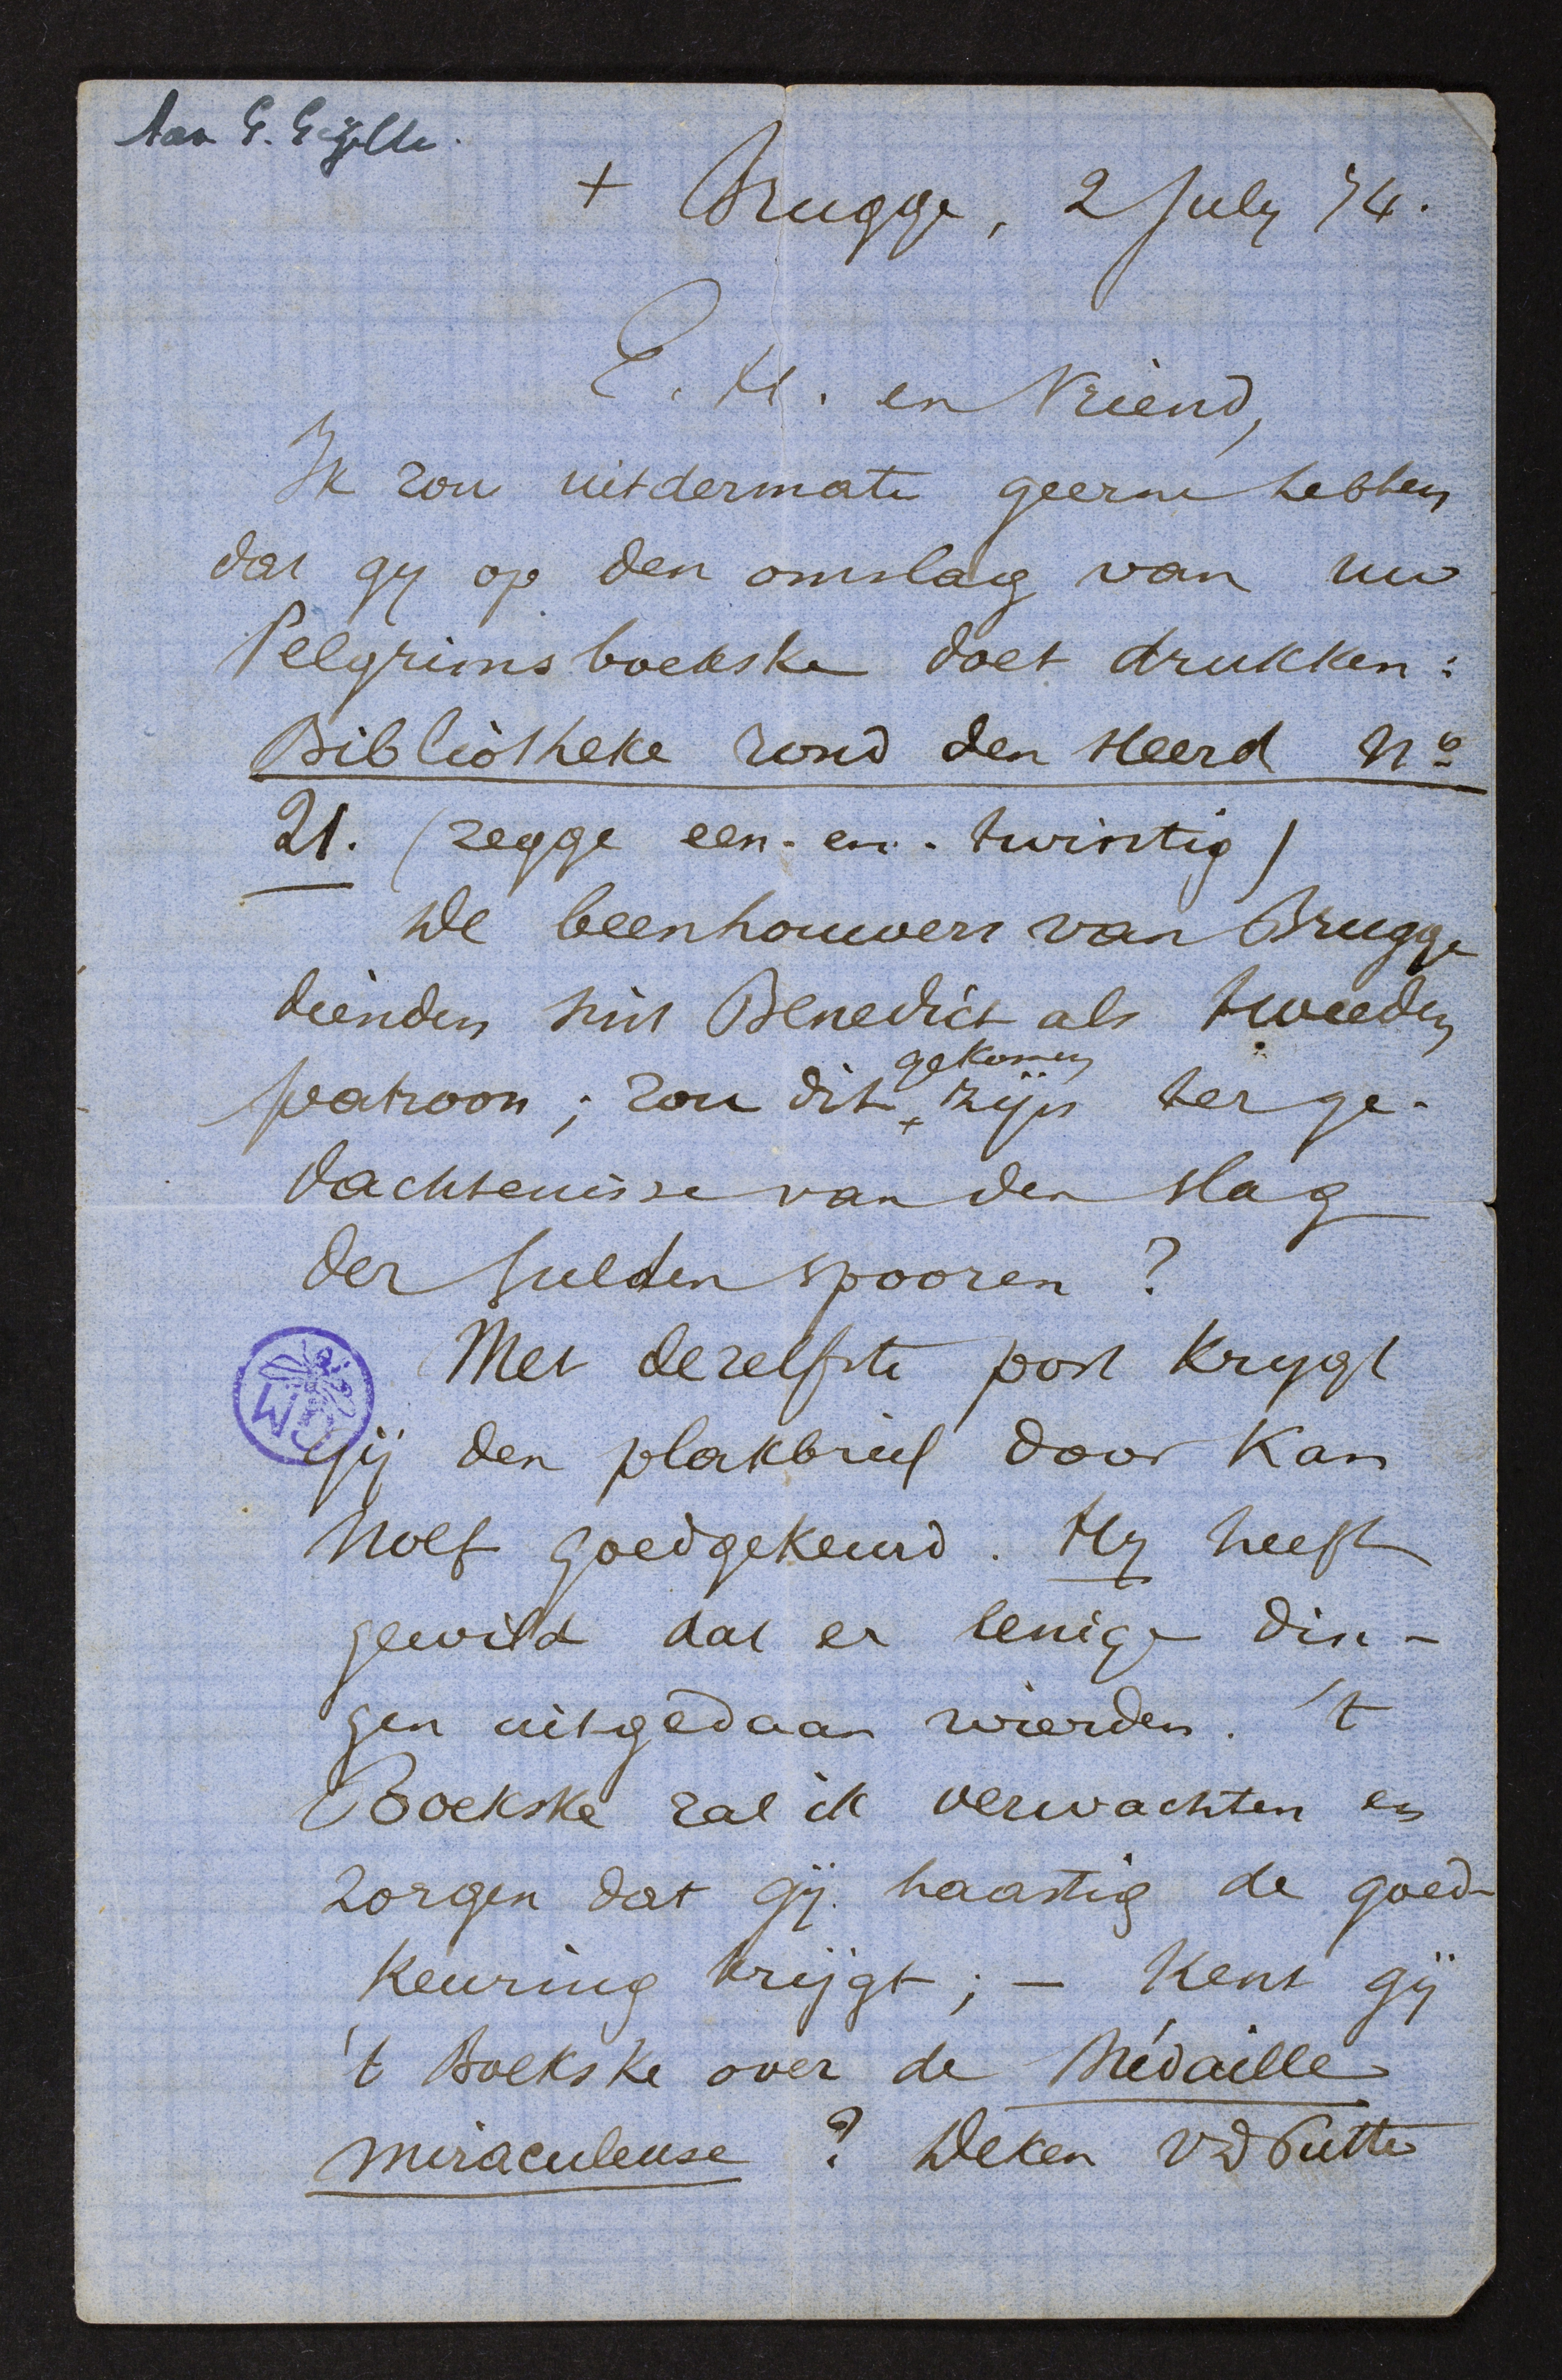 Aan G. Gezelle.
+ Brugge, 2 July 74.
E. H. en Vriend,
Ik zou uitdermate geerne hebben
dat gy op den omslag van uw
Pelgrimsboekske doet drukken:
Bibliotheke rond den Heerd No
21. (zegge een-en-twintig)
De beenhouwers van Brugge
dienden sint Benedict als tweeden
patroon; zou dit + gekomen zijn ter ge-
dachtenisse van den slag
der Gulden spooren?
Met dezelfste post krygt
WD
gij den plakbrief door Kan
Nolf goedgekeurd. Hy heeft
gewild dat er eenige din-
gen uitgedaan wierden. 't
Boekske zal ik verwachten en
zorgen dat gij haastig de goed-
keuring krijgt; — Kent gij
't Boekske over de Médaille
miraculeuse? Deken VdPutte